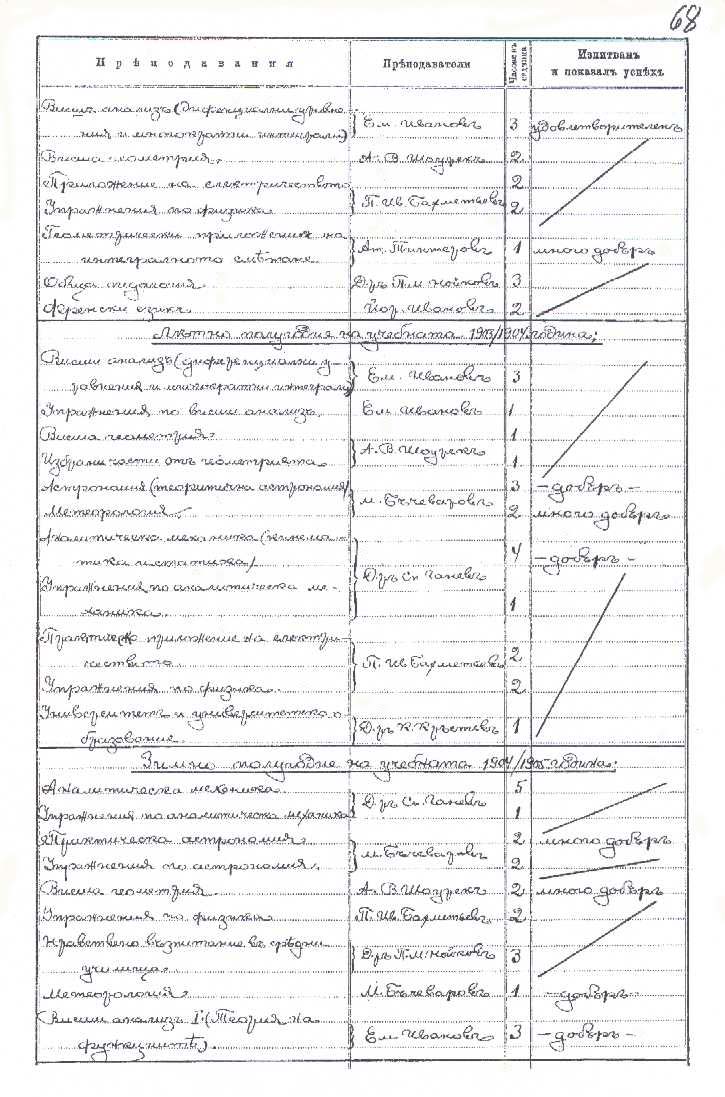 68
Прѣподавания Прѣподаватели Часове въ седмица Изпитванъ и показалъ успѣхъ
Висшъ анализъ (Диференциални уравне-
ния и многократни интеграли) Ем. Ивановъ 3 удовлетворителенъ
Висша геометрия. А. В. Шоурекъ 2
Приложение на електричеството 2
Упражнения по физика. П. Ив. Бахметьевъ 2
Геометрически приложения на
интегралното смѣтане. Ат. Тинтеровъ 1 много добъръ
Обща педагогия. Д-ръ П. М. Нойковъ 3
Френски език. Йор. Ивановъ 2
Лѣтно полугодие на учебната 1903/1904 година:
Висши анализъ (диференциални у-
равнения и многократни интеграли) Ем. Ивановъ 3
Упражнения по висши анализъ. Ем. Ивановъ 1
Висша геометрия. 1
Избрани части отъ геометрията. А. В. Шоурекъ 1
Астрономия (теоритична астрономия) 3 – добъръ –
Метеорология. М. Бъчеваровъ 2 много добъръ
Аналитическа механика (кинема-
тика и статика) 4 – добъръ –
Д-ръ Сп. Ганевъ
Упражнения по аналитическа ме-
ханика. 1
Практическо приложение на електри-
чеството 2
П. Ив. Бахметьевъ
Упражнения по физика. 2
Университетъ и университетско о-
бразование. Д-ръ К. Кръстевъ 1
Зимно полугодие на учебната 1904/1905 година:
Аналитическа механика. 5
Д-ръ Сп. Ганевъ
Упражнения по аналитическа механика 1
Практическа астрономия. 2 много добъръ
М. Бъчеваровъ
Упражнения по астрономия. 2
Висша геометрия. А. В. Шоурекъ 2 много добъръ
Упражнения по физики П. Ив. Бахметьевъ. 2
Нравствено възпитание въ срѣдни
училища. Д-ръ П. М. Нойковъ 3
Метеорология. М. Бъчеваровъ 1 – добъръ –
Висши анализъ I. (Теория на
функциитѣ). Ем. Ивановъ 3 – добъръ –